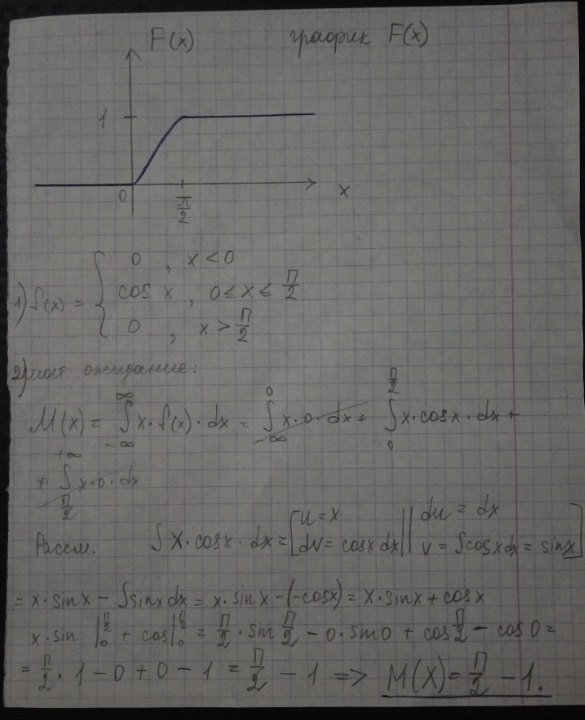 F(x) график F(x)
1
0 π/2 x
0 , x < 0
1) f(x) = { cos x , 0 ≤ x ≤ π/2
0 , x > π/2
2) мат ожидание:
M(x) = ∫_{-∞}^{∞} x · f(x) · dx = ∫_{-∞}^{0} x · 0 · dx + ∫_{0}^{π/2} x · cos x · dx +
+ ∫_{π/2}^{+∞} x · 0 · dx
Рассм. ∫ x · cos x · dx = [ u = x || du = dx
dv = cos x dx || v = ∫ cos x dx = sin x ]
= x · sin x − ∫ sin x dx = x · sin x − (−cos x) = x · sin x + cos x
x · sin |_{0}^{π/2} + cos |_{0}^{π/2} = π/2 · sin π/2 − 0 · sin 0 + cos π/2 − cos 0 =
= π/2 · 1 − 0 + 0 − 1 = π/2 − 1 => M(X) = π/2 − 1.